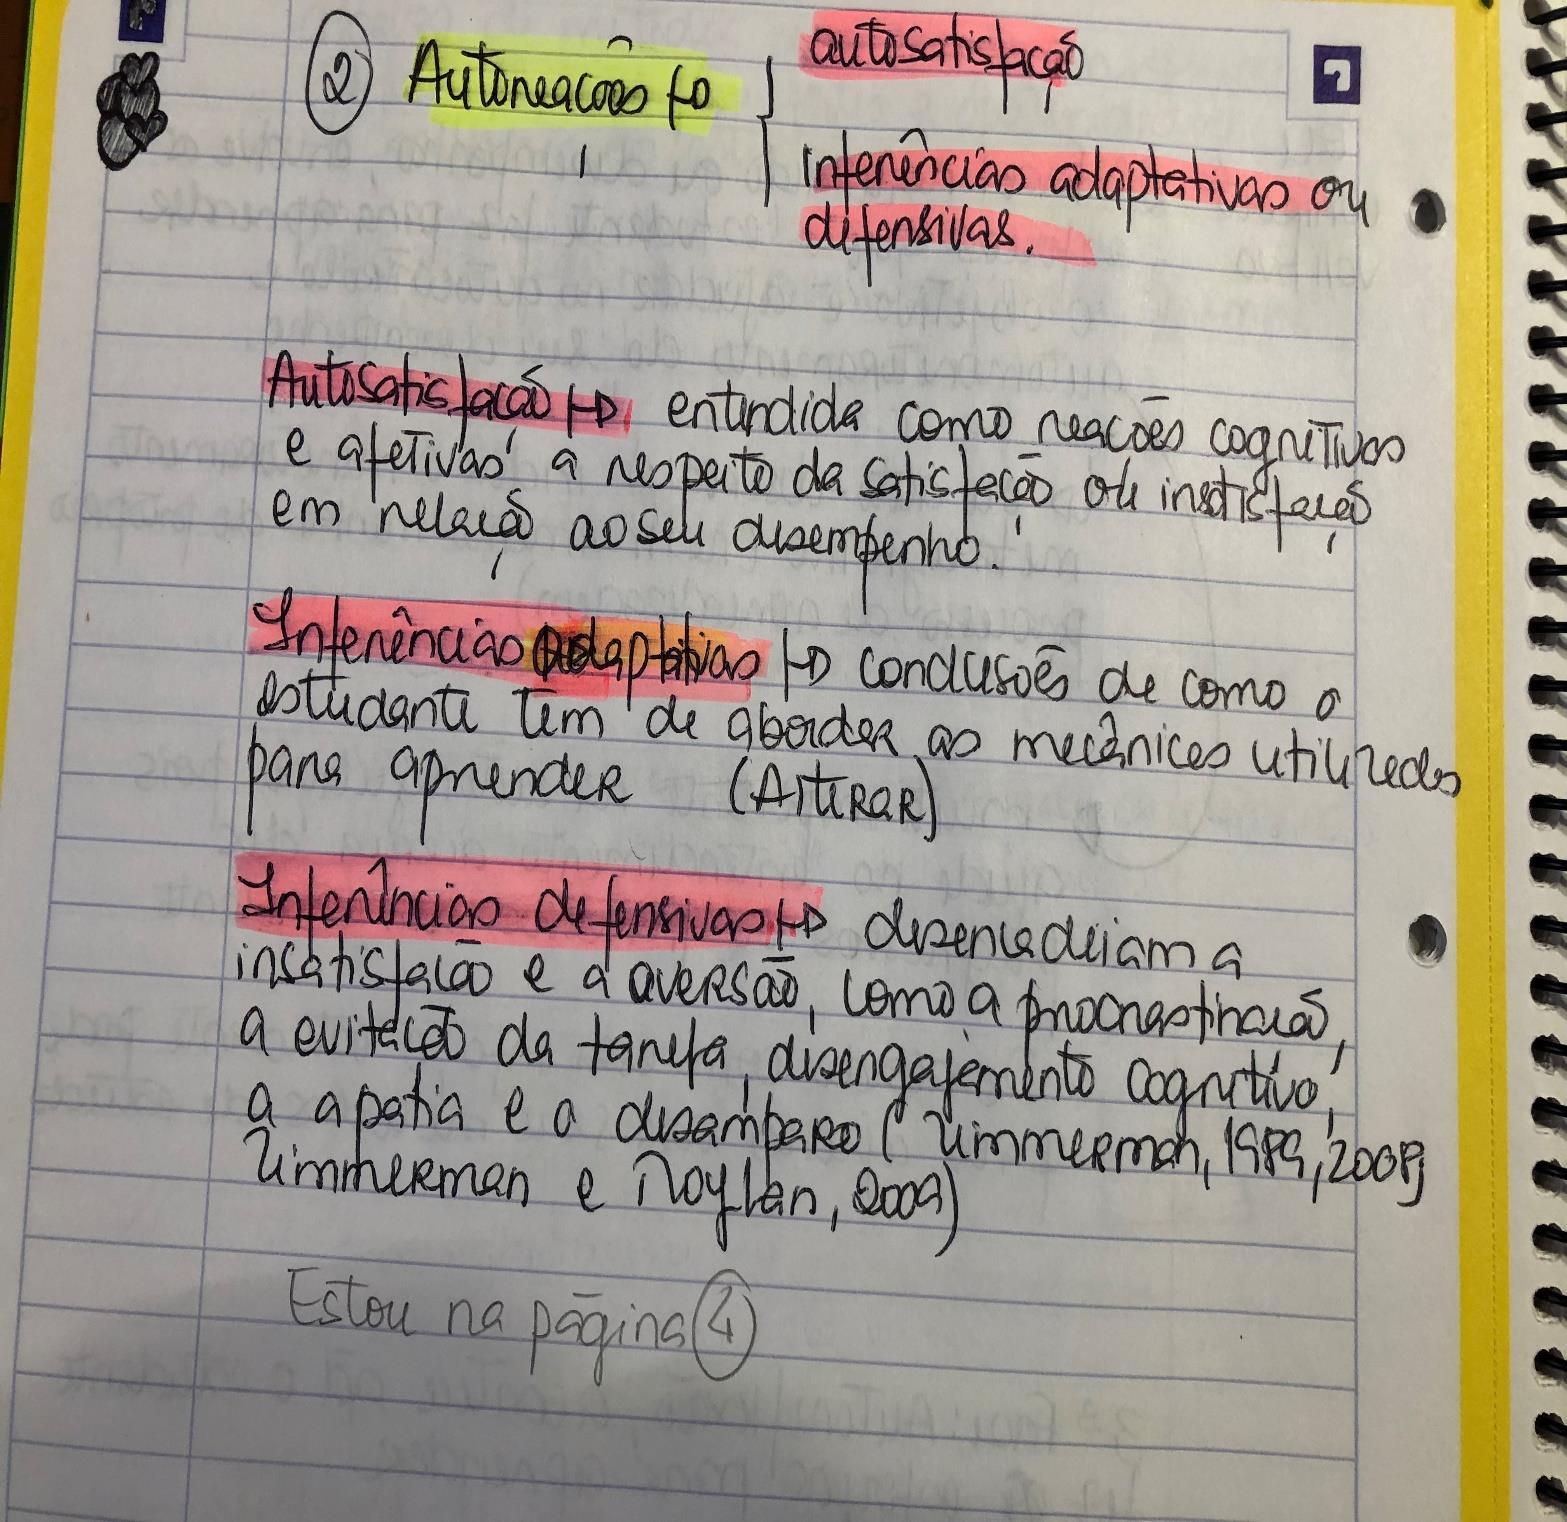 ② Autoreações → autosatisfação
inferências adaptativas ou
defensivas.
Autosatisfação → entendida como reações cognitivas
e afetivas a respeito da satisfação ou insatisfação
em relação ao seu desempenho.
Inferências adaptativas → conclusões de como o
estudante tem de abordar as mecânicas utilizadas
para aprender (Alterar)
Inferências defensivas → desencadeiam a
insatisfação e a aversão, como a procrastinação,
a evitação da tarefa, desengajamento cognitivo,
a apatia e o desamparo (Zimmerman, 1989, 2008;
Zimmerman e Moylan, 2009)
Estou na página ④